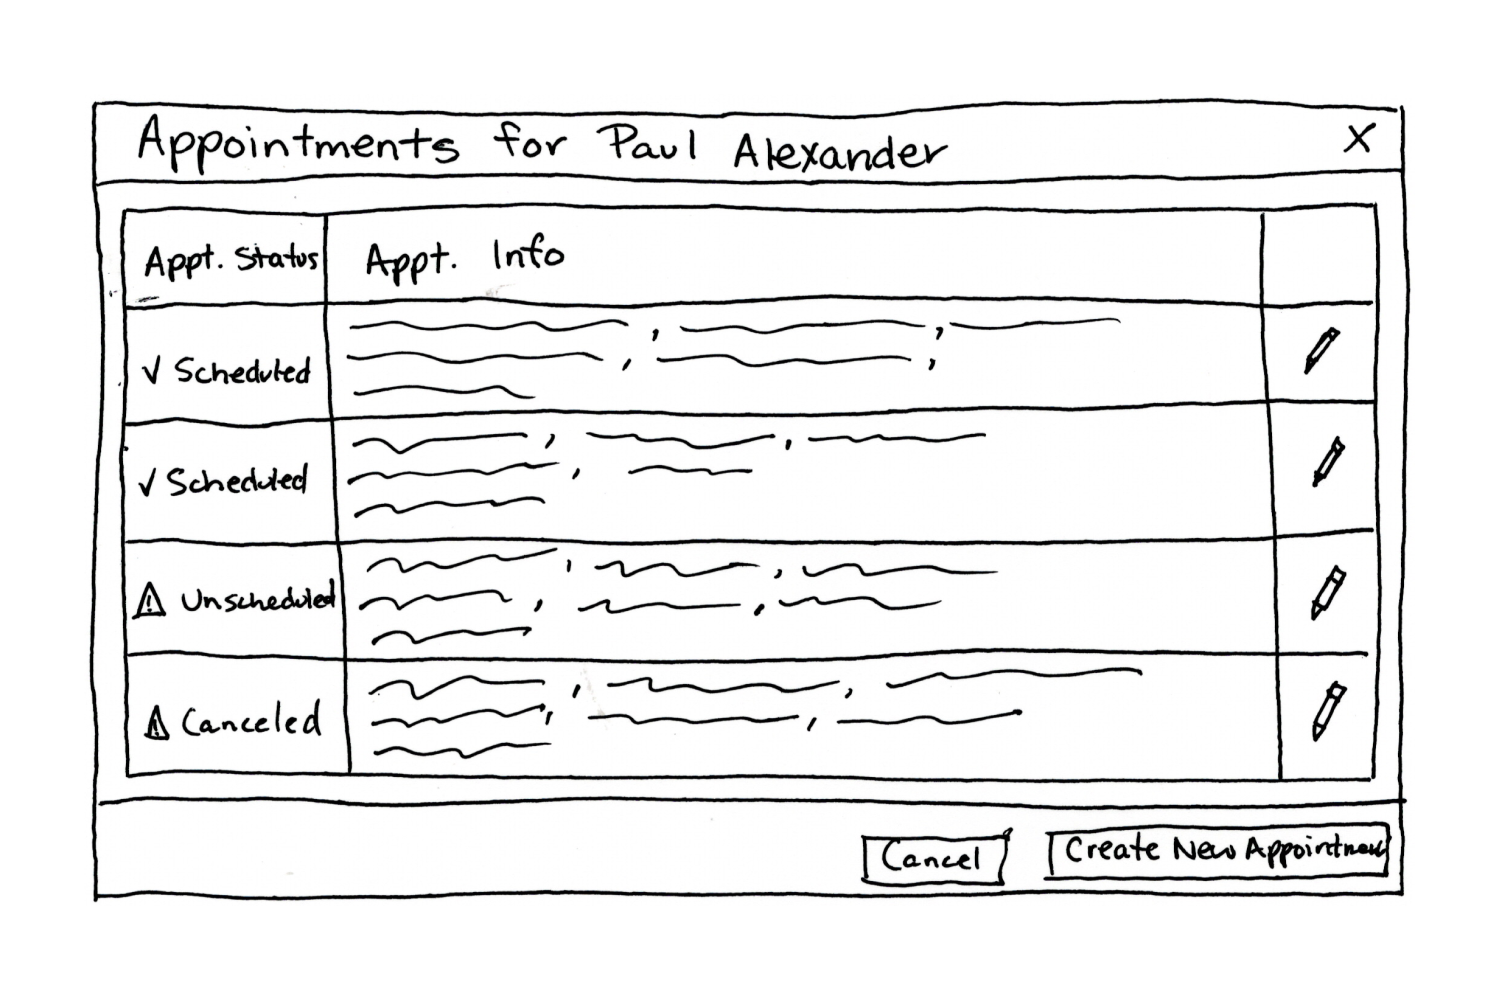 Appointments for Paul Alexander X
Appt. Status Appt. Info
✓ Scheduled
✓ Scheduled
⚠ Unscheduled
⚠ Canceled
Cancel Create New Appointment